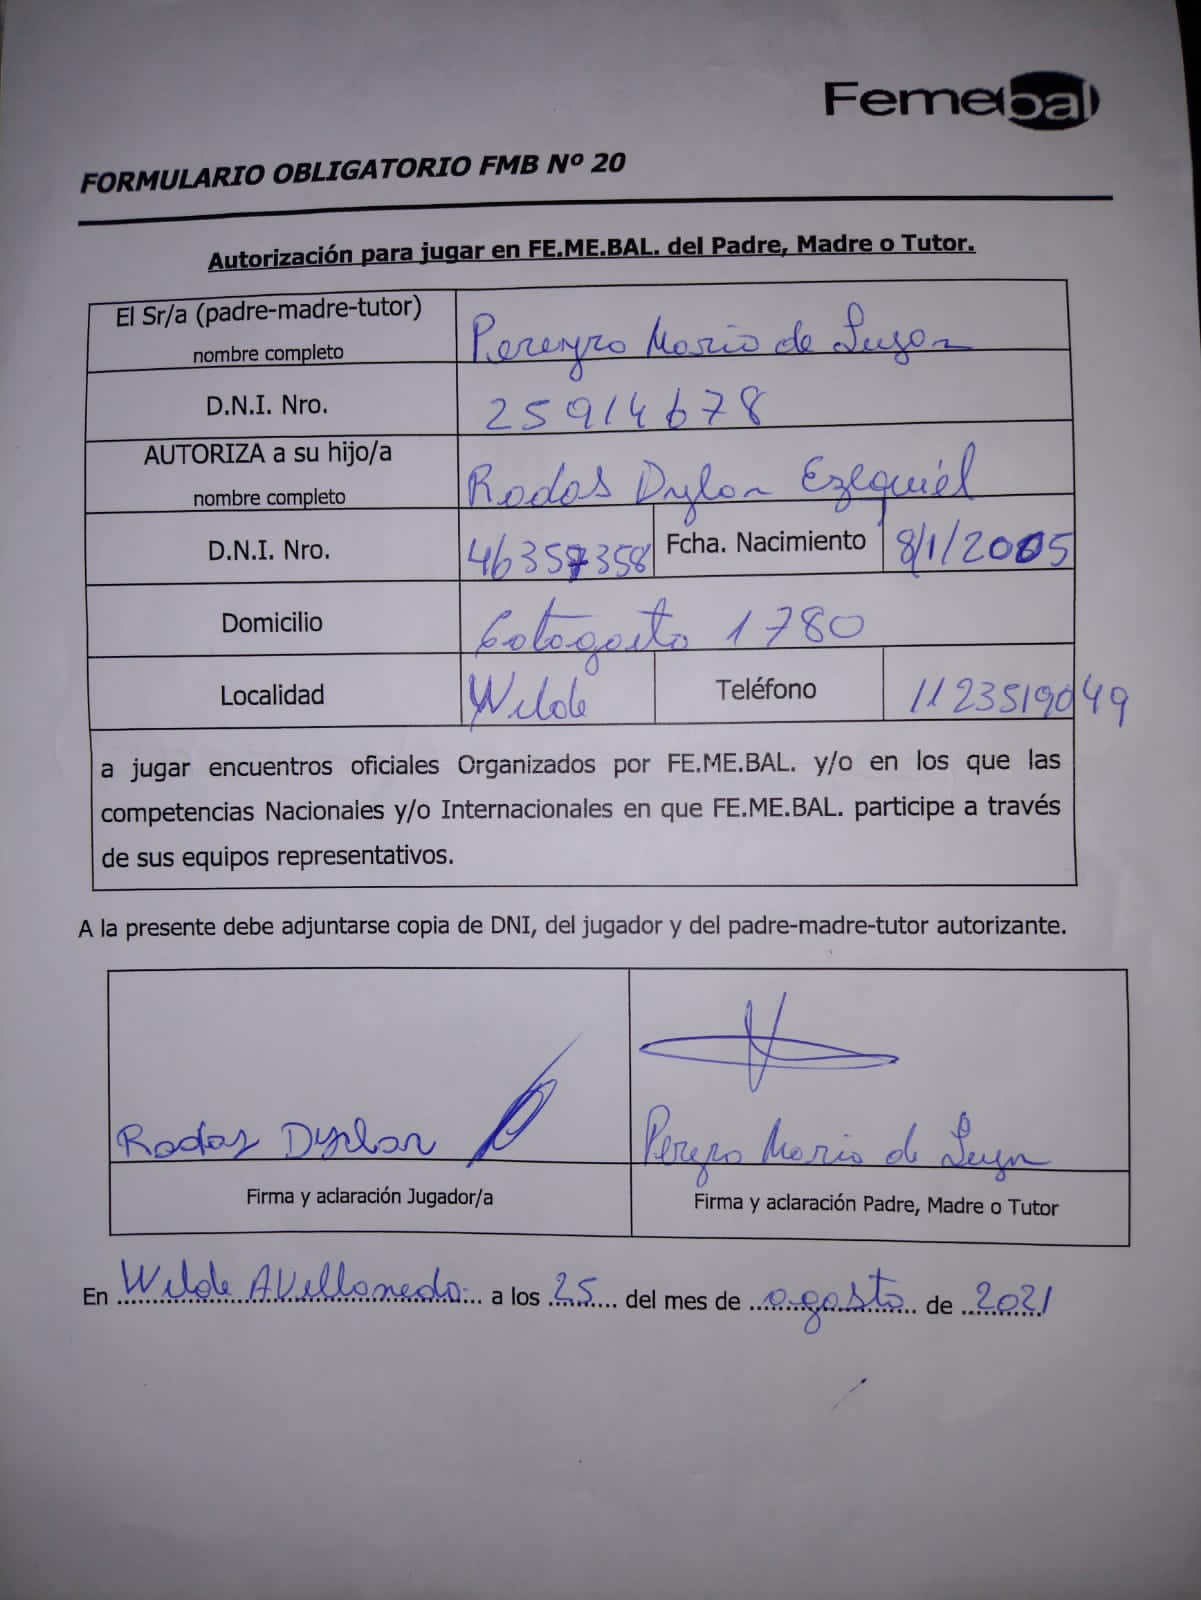 Femebal
FORMULARIO OBLIGATORIO FMB Nº 20
Autorización para jugar en FE.ME.BAL. del Padre, Madre o Tutor.
El Sr/a (padre-madre-tutor)
nombre completo
Pereyra Maria de Lujan
D.N.I. Nro.
25914678
AUTORIZA a su hijo/a
nombre completo
Rodas Dylan Ezequiél
D.N.I. Nro.
46357358
Fcha. Nacimiento
8/1/2005
Domicilio
Cotagaita 1780
Localidad
Wilde
Teléfono
1123519049
a jugar encuentros oficiales Organizados por FE.ME.BAL. y/o en los que las
competencias Nacionales y/o Internacionales en que FE.ME.BAL. participe a través
de sus equipos representativos.
A la presente debe adjuntarse copia de DNI, del jugador y del padre-madre-tutor autorizante.
Rodas Dylan
Pereyra Maria de Lujan
Firma y aclaración Jugador/a
Firma y aclaración Padre, Madre o Tutor
En Wilde Avellaneda a los 25 del mes de agosto de 2021